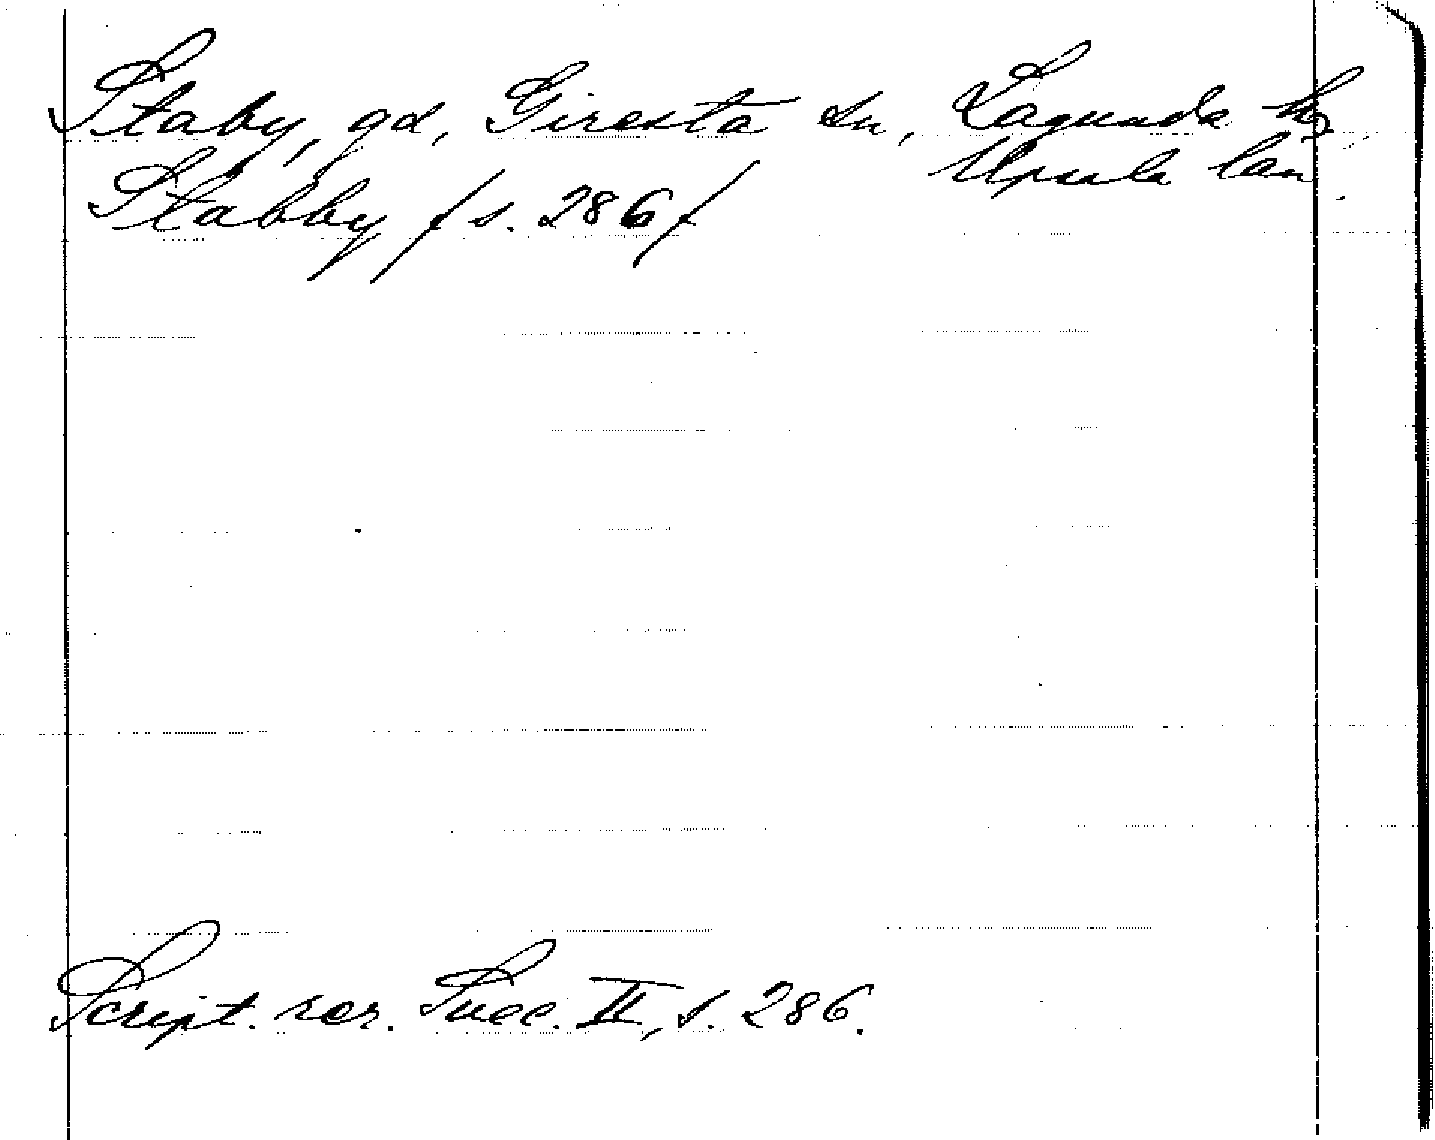 Staby, gd, Giresta sn, Lagunda hd
Upsala län.
Stabby / s. 286 /
Script. rer. Suec. II, s. 286.